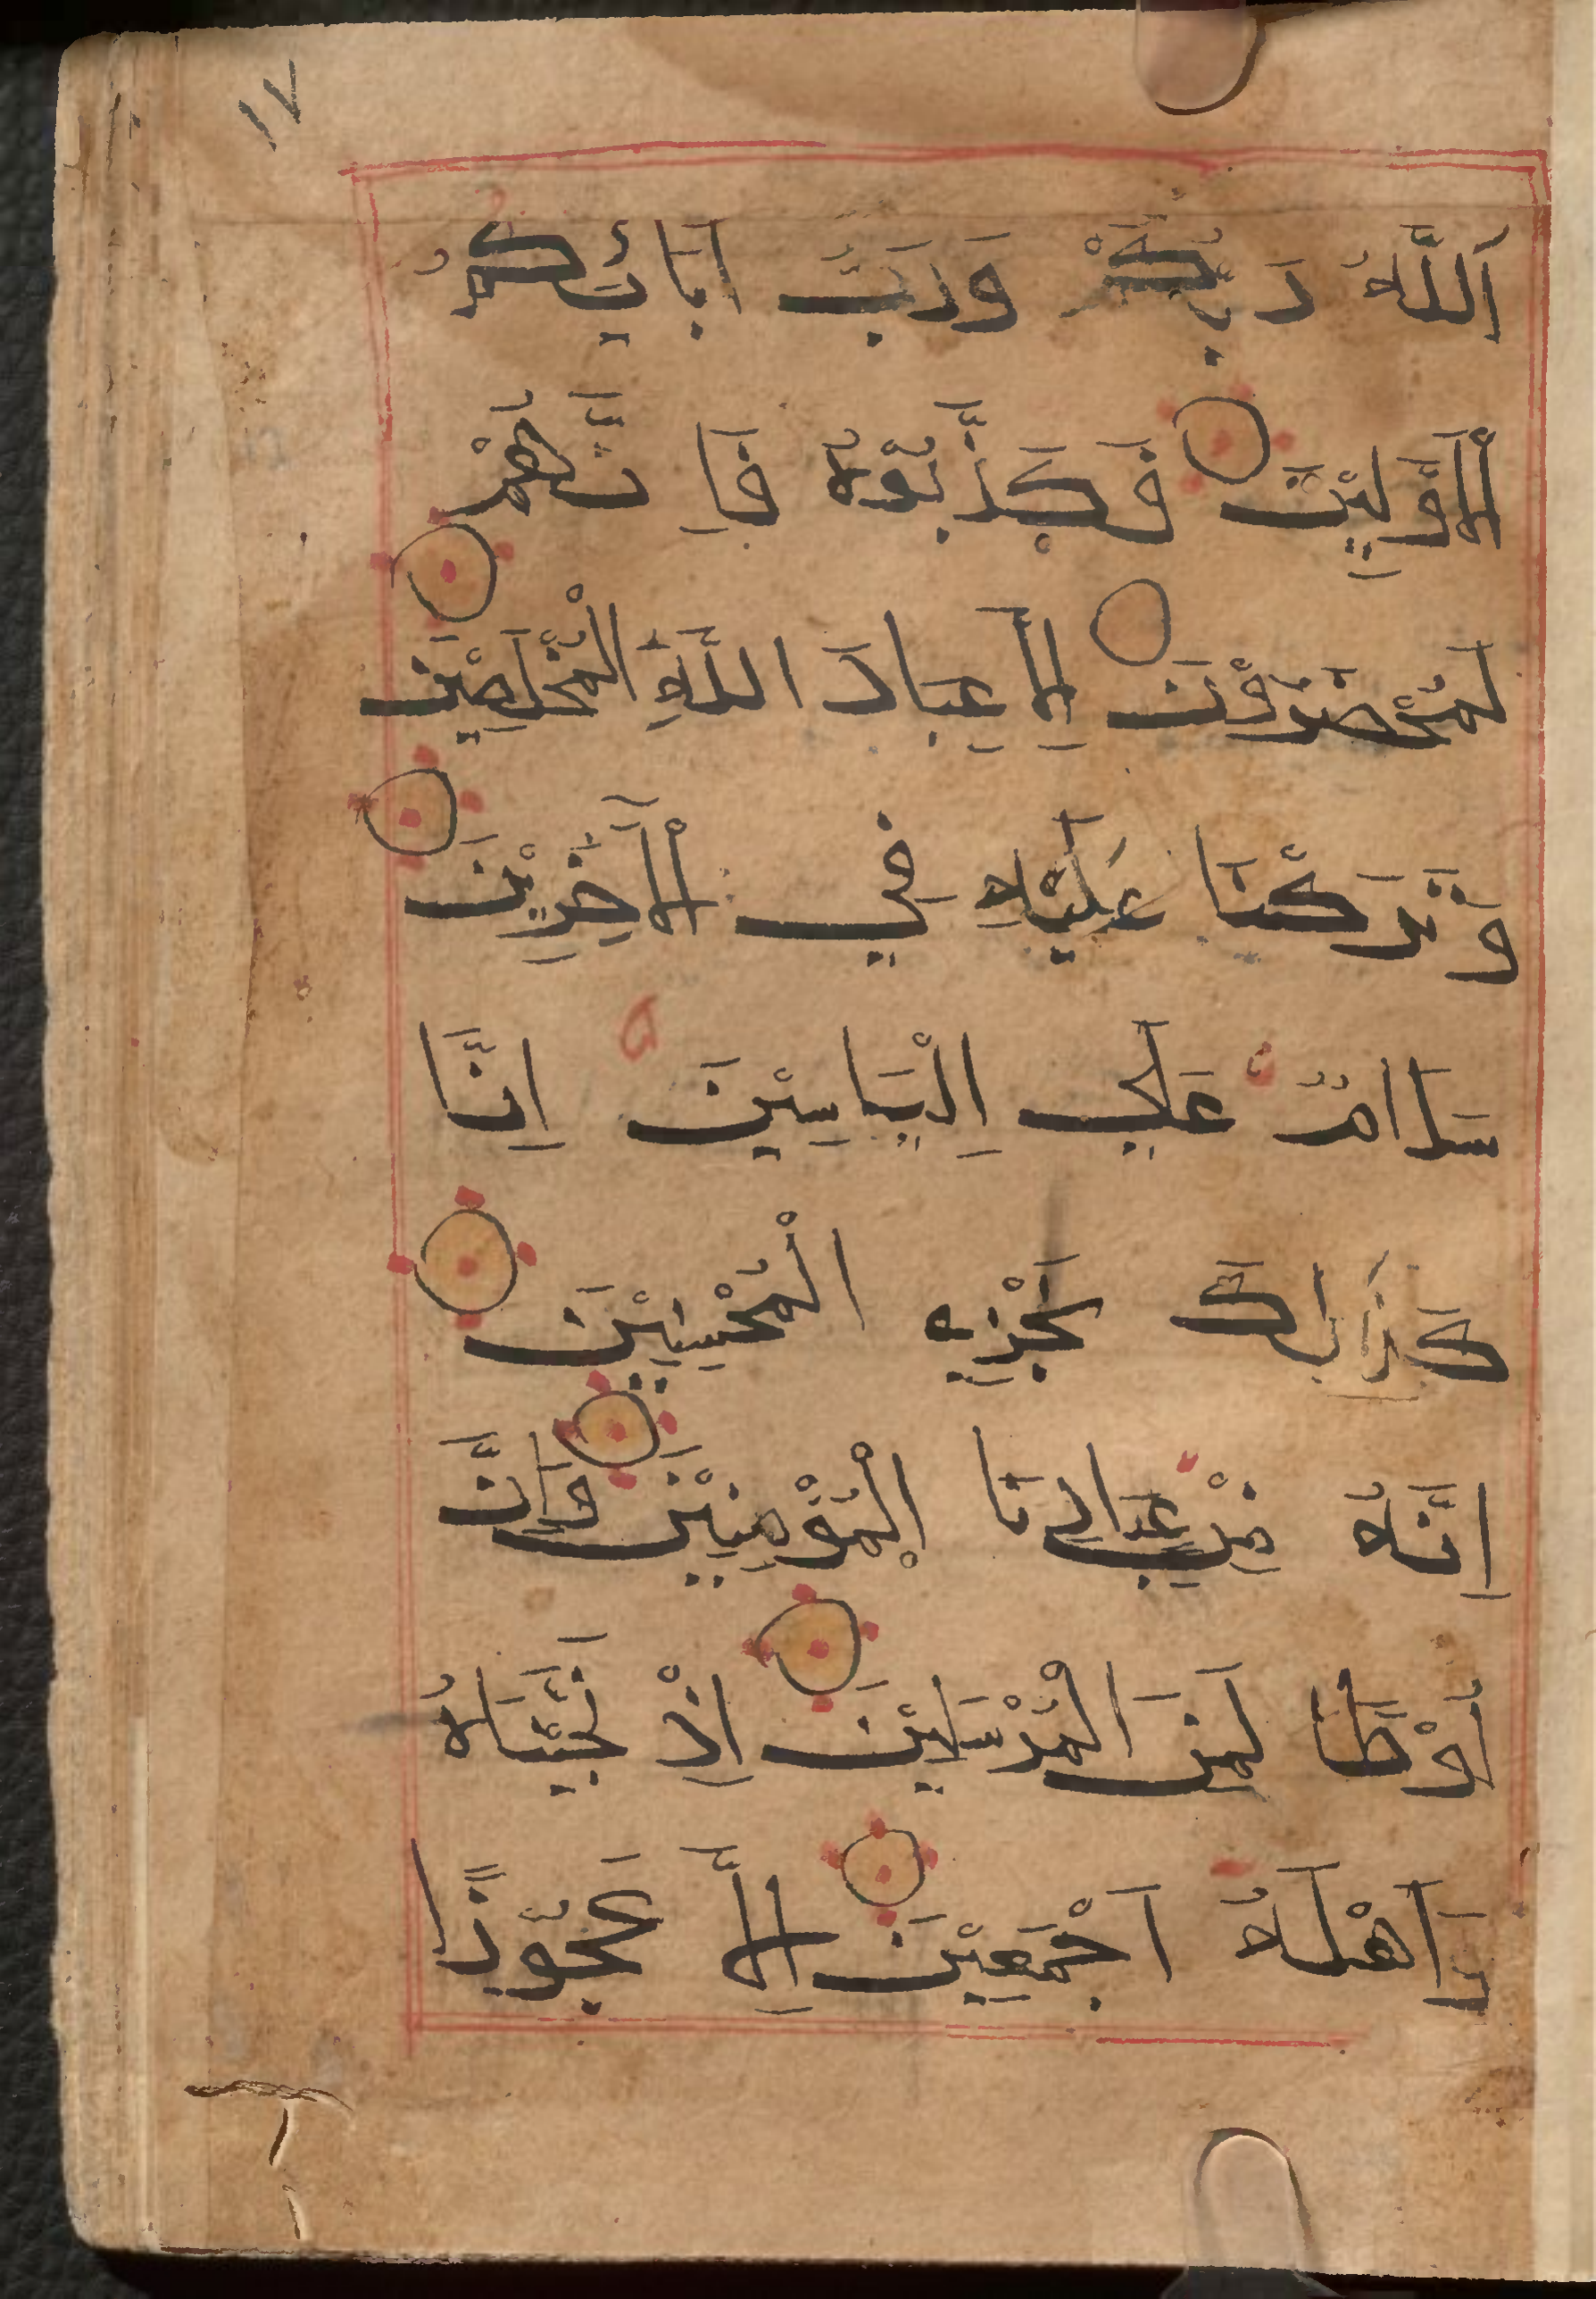 ١٧
اَللّٰهُ رَبُّكُمْ وَرَبَّ اٰبَائِكُمُ
الْاَوَّلِيْنَ فَكَذَّبُوْهُ فَاِنَّهُمْ
لَمُحْضَرُوْنَ اِلَّا عِبَادَ اللّٰهِ الْمُخْلَصِيْنَ
وَتَرَكْنَا عَلَيْهِ فِي الْاٰخِرِيْنَ
سَلَامٌ عَلٰي اِلْيَاسِيْنَ اِنَّا
كَذَالِكَ نَجْزِي الْمُحْسِنِيْنَ
اِنَّهُ مِنْ عِبَادِنَا الْمُؤْمِنِيْنَ وَاِنَّ
لُوْطًا لَمِنَ الْمُرْسَلِيْنَ اِذْ نَجَّيْنَاهُ
وَاَهْلَهُ اَجْمَعِيْنَ اِلَّا عَجُوْزًا